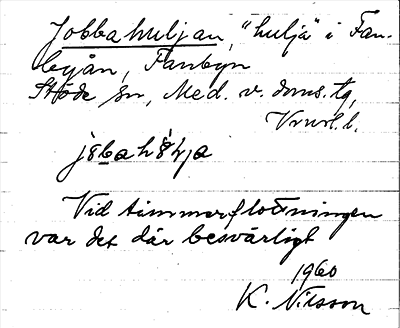 Jobbahuljan, "hulja" i Fan-
byån, Fanbyn
Stöde sn, Med. v. doms. tg,
Vnrl. l.
Vid timmerflottningen
var det där besvärligt
1960
K. Nilsson